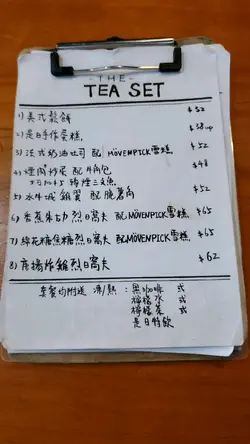 -THE-
TEA SET
1) 美式鬆餅 $52
2) 是日手作蛋糕 $38up
3) 法式奶油吐司 配 MÖVENPICK雪糕 $52
4) 煙肉炒蛋 配 牛角包 $48
轉煙三文魚
5) 水牛城雞翼 配 脆薯角 $52
6) 香蕉朱古力烈日窩夫 配MÖVENPICK雪糕 $65
7) 棉花糖焦糖烈日窩夫 配MÖVENPICK雪糕 $65
8) 唐揚炸雞烈日窩夫 $62
套餐均附送 凍/熱 : 黑咖啡 或
檸檬水 或
檸檬茶 或
是日特飲